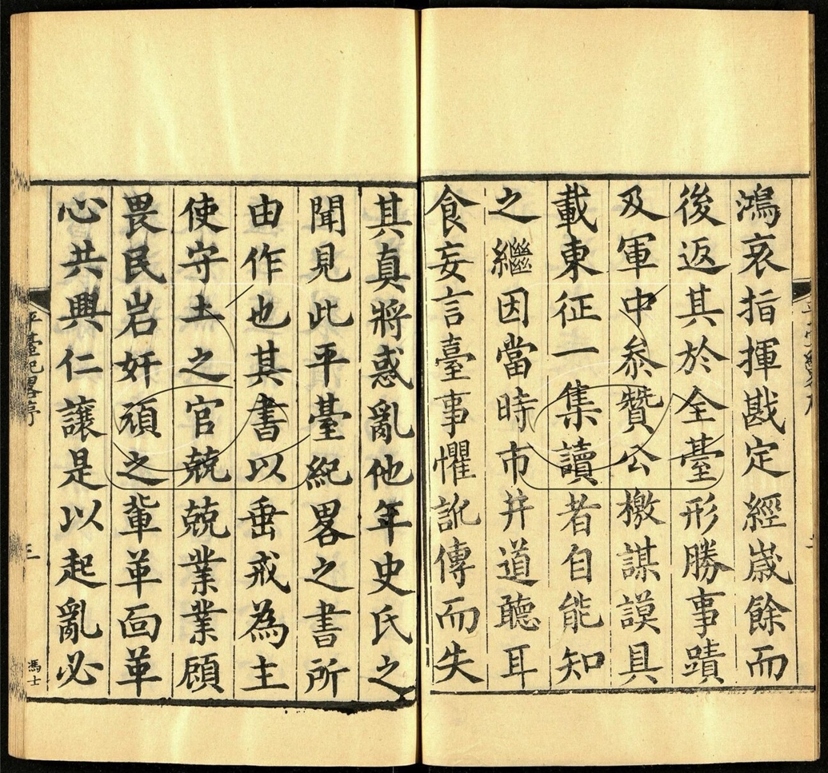 鴻哀指揮戡定經歲餘而
後返其於全臺形勝事蹟
及軍中叅贊公檄謀謨具
載東征一集讀者自能知
之繼因當時市井道聽耳
食妄言臺事懼訛傳而失
其真將惑亂他年史氏之
聞見此平臺紀畧之書所
由作也其書以垂戒為主
使守土之官兢兢業業顧
畏民岩奸頑之輩革面革
心共興仁讓是以起亂必
平臺紀畧序
三
馮士